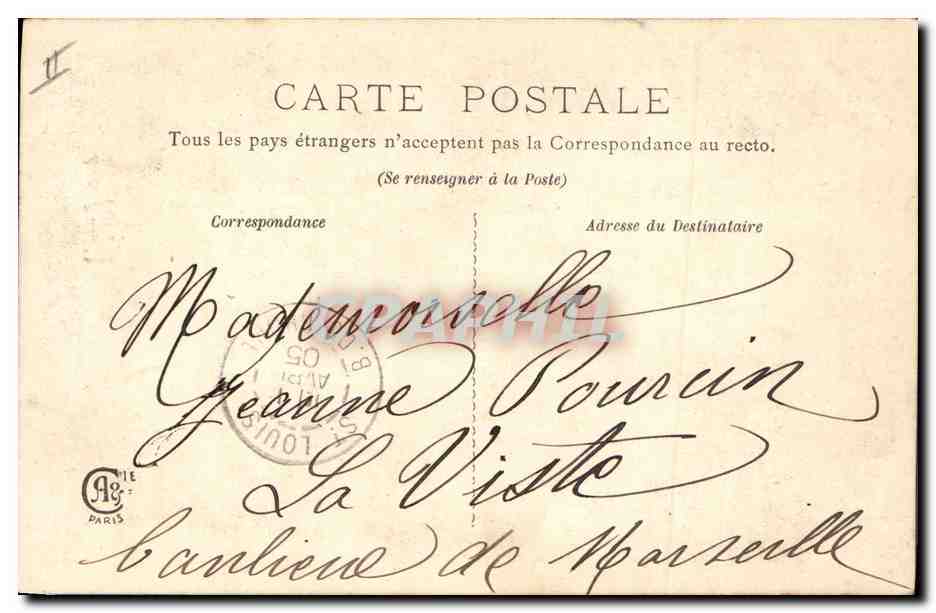 II
CARTE POSTALE
Tous les pays étrangers n'acceptent pas la Correspondance au recto.
(Se renseigner à la Poste)
Correspondance
Adresse du Destinataire
Mademoiselle
Jeanne Pourcin
La Viste
banlieue de Marseille
ST LOUIS
AVRIL
05
B.
A & CIE
PARIS